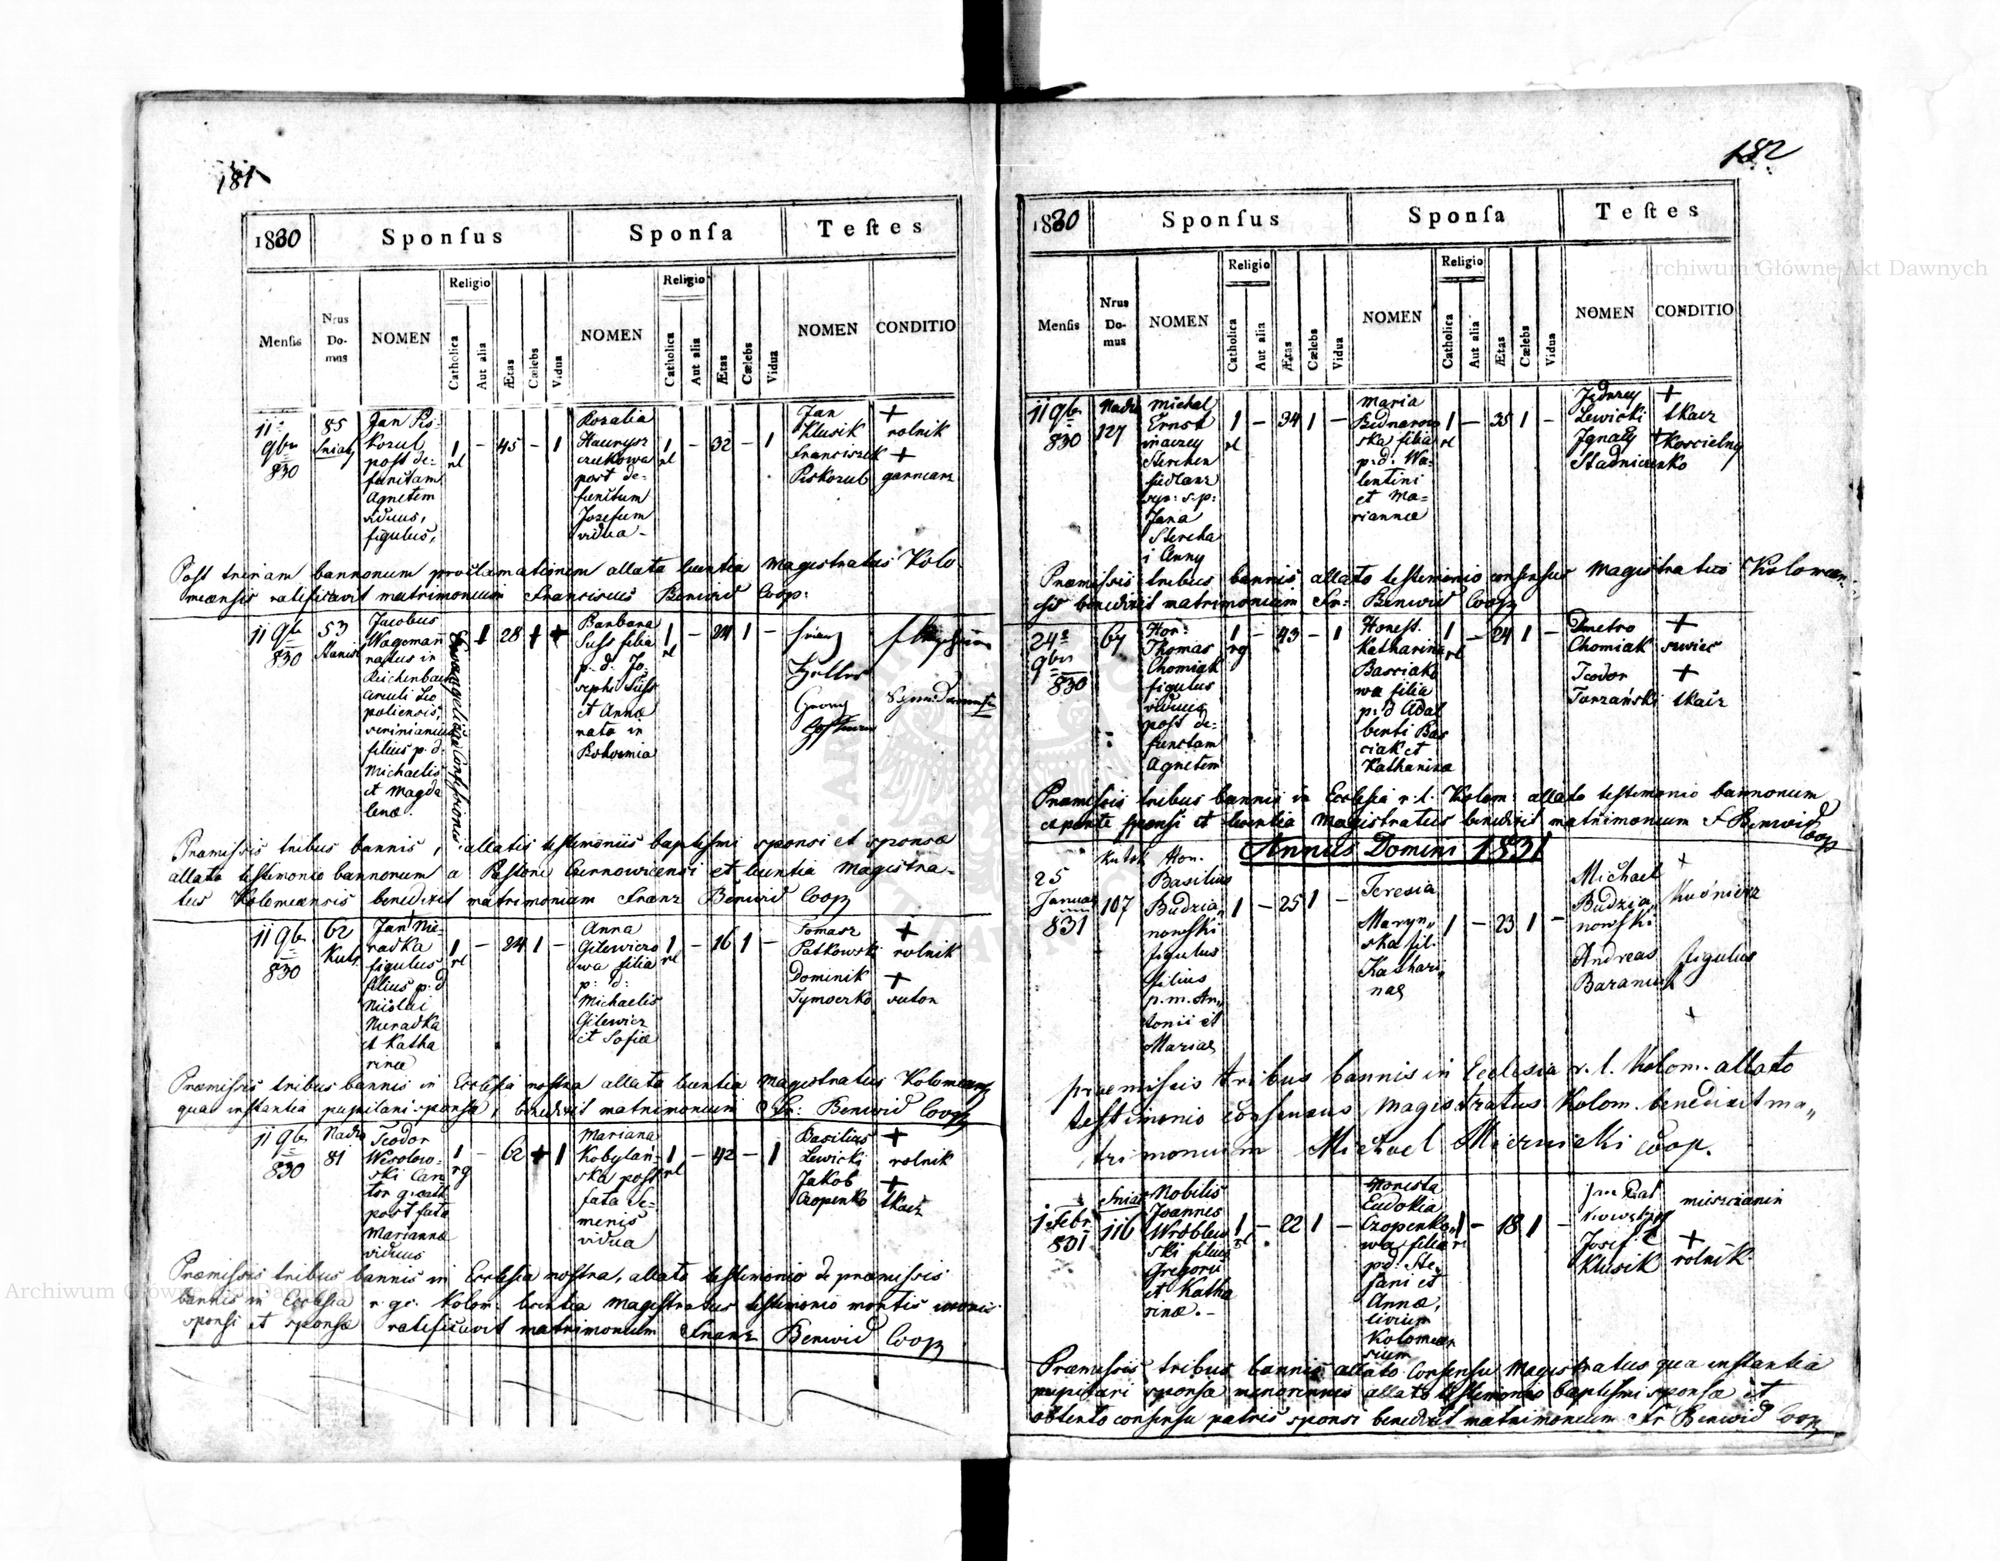 181
1830
Sponſus
Sponſa
Teſtes
Religio
Religio
Menſis
Nrus Do- mus
NOMEN
Catholica
Aut alia
Ætas
Cælebs
Vidua
NOMEN
Catholica
Aut alia
Ætas
Cælebs
Vidua
NOMEN
CONDITIO
11
9br
830
85
Sniaty
Jan Pis-
korul
post de-
functam
Agnetem
viduus,
figulus,
1
rl
-
45
-
1
Rozalia
post de-
functum
Jozefum
vidua -
1
rl
-
32
-
1
Jan
Klusik
Franciszek
Piskorul
+
rolnik
+
garncarz
Post trinam bannorum proclamationem allata licentia Magistratus Kolo
meensis ratificavit matrimonium Franciscus Benwid Coop:
11 9br
830
53
Stanisl
Jacobus
Wageman
natus in
Reichenbach
circuli Leo
poliensis,
scriniarius
filius p. d.
Michaelis
et Magda
lenæ.
Evangelicæ Confessionis
1
28
+
+
Barbara
Süss filia
p. d. Jo-
sephi Süss
et Annæ
nata in
Bohoemia
1
rl
-
24
1
-
Georg
Præmissis tribus bannis, allatis testimoniis baptismi sponsi et sponsæ
allato testimonio bannorum a Pastore Czernowicensi et licentia Magistra-
tus Kolomeensis benedixit matrimonium Franz Benwid Coop
11 9br
830
62
Kuty
Jan Mu
radka
figulus
filius p. d
Nicolai
Muradka
et Katha
rinæ
1
rl
-
24
1
-
Anna
Gilewiczo
wa filia
p: d:
Michaelis
Gilewicz
et Sofiæ
1
rl
-
16
1
-
Tomasz
Patkowski
Dominik
Tymoczko
+
rolnik
+
sutor
Præmissis tribus bannis in Ecclesia nostra allata licentia Magistratus Kolomeens
qua instantia pupilari sponsæ, benedixit matrimonium Fr: Benwid Coop
11 9br
830
Nadw
81
Teodor
Wesolow-
ski Can
tor g. cath
post fata
Mariannæ
viduus
1
rg
-
62
+
1
Mariana
Kobylan-
ska post
fata Se-
menis
vidua
1
rl
-
42
-
1
Basilius
Lewicki
Jakob
Czopenko
+
rolnik
+
tkacz
Præmissis tribus bannis in Ecclesia nostra, allato testimonio de præmissis
bannis in Ecclesia r. gr. Kolom. licentia Magistratus testimonio mortis
sponsi et sponsæ ratificavit matrimonium Franz Benwid Coop
182
1830
Sponſus
Sponſa
Teſtes
Religio
Religio
Menſis
Nrus Do- mus
NOMEN
Catholica
Aut alia
Ætas
Cælebs
Vidua
NOMEN
Catholica
Aut alia
Ætas
Cælebs
Vidua
NOMEN
CONDITIO
11 9br
830
Nadw
127
Michal
Ernst
Sterchen
syn: s. p:
Jana
Stercha
i Anny
1
rl
-
34
1
-
Maria
Bednarow
ska filia
p: d: Wa-
lentini
et Ma-
riannæ
1
rl
-
35
1
-
Jędrzey
Lewicki
Jgnaty
Stadniczenko
+
tkacz
+ Koscielny
Præmissis tribus bannis allato testimonio consensus Magistratus Kolomeen-
sis benedixit matrimonium Fr: Benwid Coop
24
9bri
830
67
Hon:
Thomas
Chomiak
figulus
viduus
post de-
functam
Agnetem
1
rg
-
43
-
1
Honest.
Katharina
Basciako
wa filia
p: d Adal
berti Bas
ciak et
Katharinæ
1
rl
-
24
1
-
Dmetro
Chomiak
Teodor
Tarzański
+
szwiec
+
tkacz
Præmissis tribus bannis in Ecclesia r: l: Kolom: allato testimonio bannorum
ex parte sponsi et licentia Magistratus benedixit matrimonium F Benwid
Coop
Annus Domini 1831
25
Januar
831
Kutsk
107
Hon.
Basilius
Budzia„
nowski
figulus
filius
p. m. An„
tonii et
Mariae
1
-
25
1
-
Teresia
Maryn„
ska fil.
Kathari„
nae
1
-
23
1
-
Michael
Budzia„
nowski
Andreas
Baraniuk
+
Kuśnierz
figulus
+
praemissis tribus bannis in Ecclesia r. l. Kolom. allato
testimonio consensus Magistratus Kolom. benedixit ma„
trimonium Michael Miernicki coop.
1 Febr
831
Sniat
116
Nobilis
Joannes
Wroblew
ski filius
Gregorii
et Katha
rinæ. -
1
rl
-
22
1
-
Honesta
Eudokia
Czopenko„
wa filia
p. d. Ste-
fani et
Annæ,
civium
Kolomeen
sium
1
-
18
1
-
Josif
Klusik
mieszczanin
+
rolnik
Præmissis tribus bannis allato Consensu Magistratus qua instantia
pupilari sponsæ minorennis allato testimonio baptismi sponsæ et
obtento consensu patris sponsi benedixit matrimonium Fr Benwid Coop
Archiwum Główne Akt Dawnych
Archiwum Główne Akt Dawnych